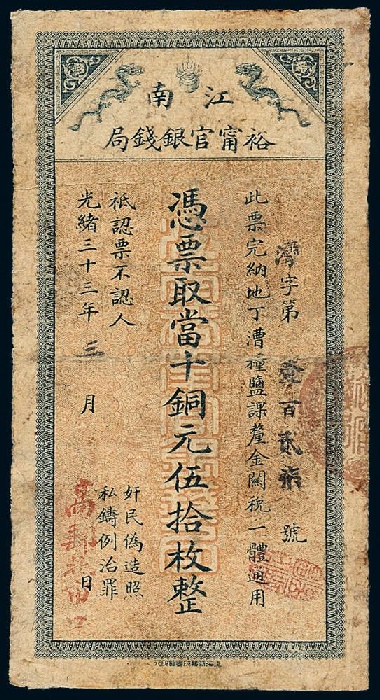 江南
裕甯官銀錢局
字第壹百貳號
此票完納地丁漕糧鹽課釐金關稅一體通用
憑票取當十銅元伍拾枚整
祇認票不認人
光緒三十三年三月日
奸民偽造照
私鑄例治罪
高郵